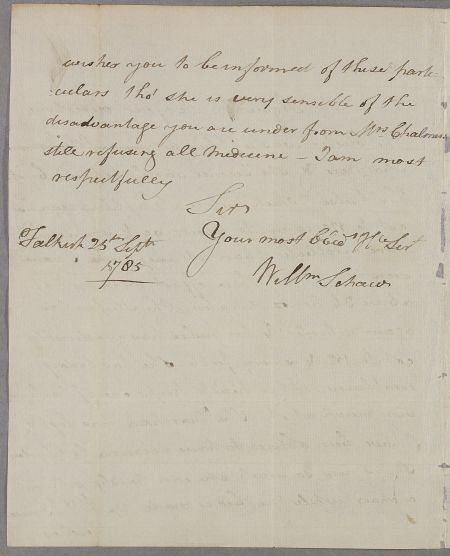 wishes you to be informed of these parti-
-culars tho' she is very sensible of the
disadvantage you are under from Mrs Chalmers
still refusing all Medicine - I am most
respectfully
Sir
Your most Obedt Hle Sert
Falkirk 25th Septr
1785
Willm Schaw